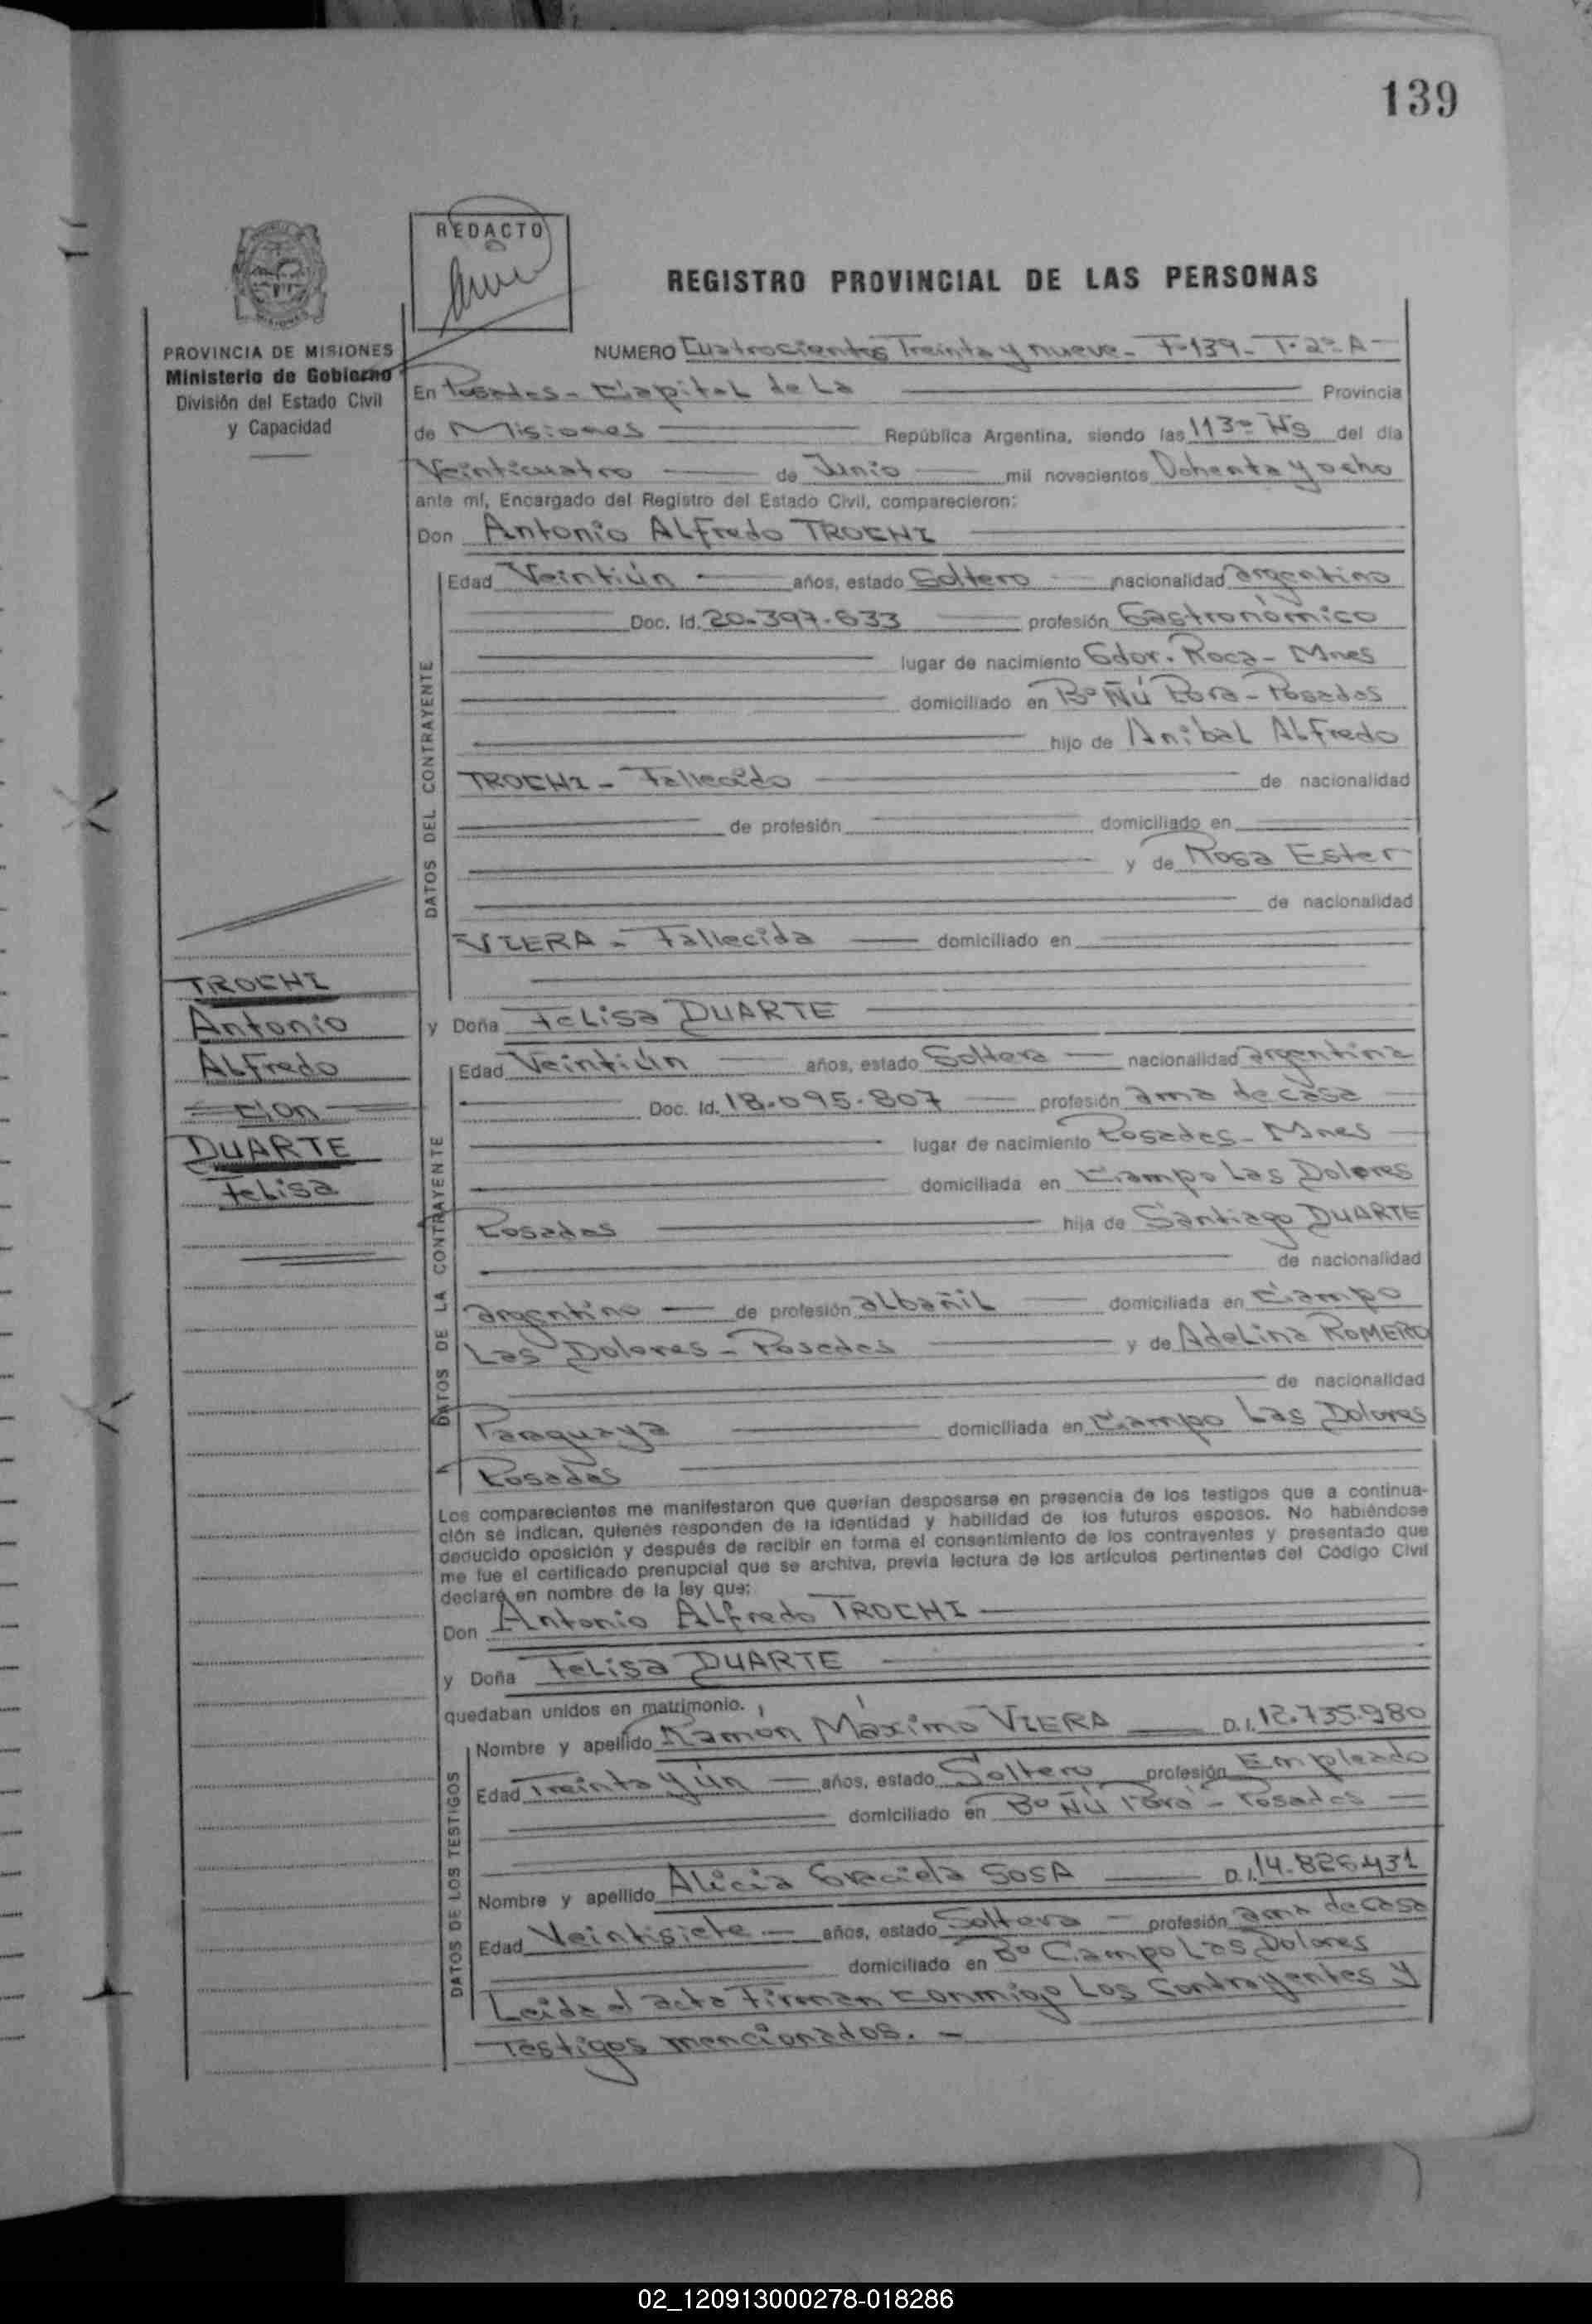 139
REDACTO
REGISTRO PROVINCIAL DE LAS PERSONAS
MISIONES
PROVINCIA DE MISIONES
Ministerio de Gobierno
División del Estado Civil
y Capacidad
NUMERO Cuatrocientos Treinta y nueve - F-139 - T-2º A -
En Posadas - Capital de La Provincia
de Misiones República Argentina, siendo las 1130 Hs del día
Veinticuatro de Junio mil novecientos Ochenta y ocho
ante mí, Encargado del Registro del Estado Civil, comparecieron:
Don Antonio ALfredo TROCHI
DATOS DEL CONTRAYENTE
Edad Veintiún años, estado Soltero nacionalidad argentino
Doc. Id. 20.397.633 profesión Gastronómico
lugar de nacimiento Gdor. Roca - Mnes
domiciliado en Bº Ñú Pora - Posadas
hijo de Anibal ALfredo
TROCHI - Fallecido de nacionalidad
de profesión domiciliado en
y de Rosa Ester
de nacionalidad
VIERA - Fallecida domiciliado en
TROCHI
Antonio
ALfredo
= con =
DUARTE
FeLisa
y Doña FeLisa DUARTE
DATOS DE LA CONTRAYENTE
Edad Veintiún años, estado Soltera nacionalidad argentina
Doc. Id. 18.095.807 profesión ama de casa
lugar de nacimiento Posadas - Mnes
domiciliada en Campo Las Dolores
Posadas hija de Santiago DUARTE
de nacionalidad
argentino de profesión aLbañiL domiciliada en Campo
Las Dolores - Posadas y de AdeLina ROMERO
de nacionalidad
Paraguaya domiciliada en Campo Las Dolores
Posadas
Los comparecientes me manifestaron que querían desposarse en presencia de los testigos que a continua-
ción se indican, quienes responden de la identidad y habilidad de los futuros esposos. No habiéndose
deducido oposición y después de recibir en forma el consentimiento de los contrayentes y presentado que
me fue el certificado prenupcial que se archiva, previa lectura de los artículos pertinentes del Código Civil
declaré en nombre de la ley que:
Don Antonio ALfredo TROCHI
y Doña FeLisa DUARTE
quedaban unidos en matrimonio.
DATOS DE LOS TESTIGOS
Nombre y apellido Ramón Máximo VIERA D.I. 12.735.980
Edad Treinta y ún años, estado Soltero profesión Empleado
domiciliado en Bº Ñú Porá - Posadas
Nombre y apellido Alicia Graciela SOSA D.I. 14.826.431
Edad Veintisiete años, estado Soltera profesión ama de casa
domiciliado en Bº Campo Las Dolores
Leida el acta Firman conmigo Los Contrayentes y
Testigos mencionados. -
02_120913000278-018286